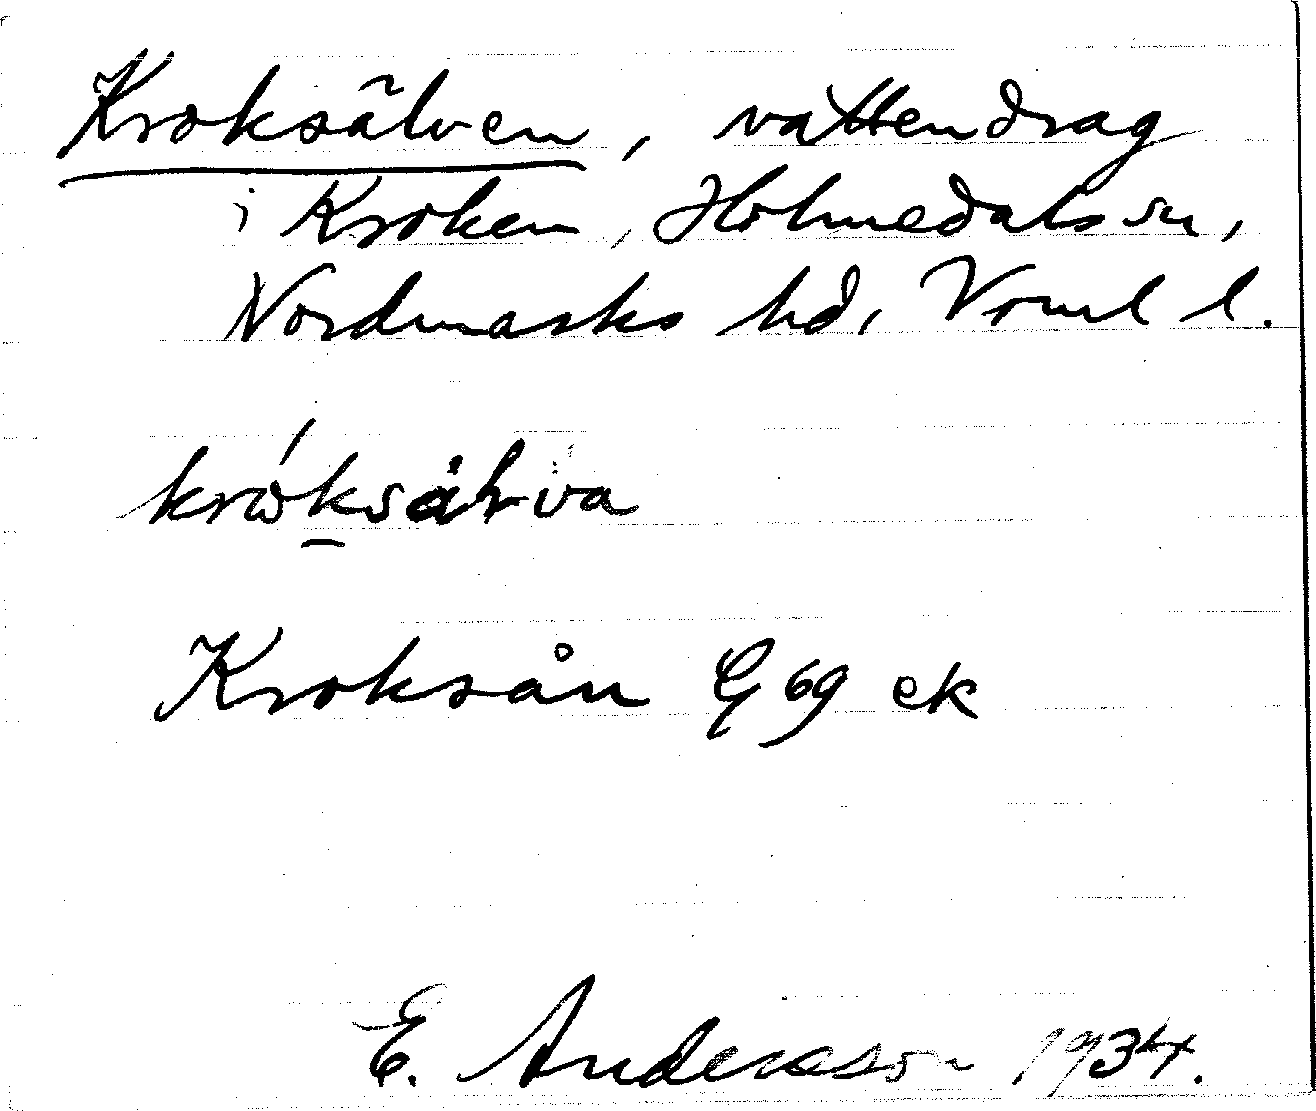 Kroksälven, vattendrag
i Kroken, Holmedals sn,
Nordmarks hd, Vrml l.
Kroksån G 69 ek
E. Andersson 1934.